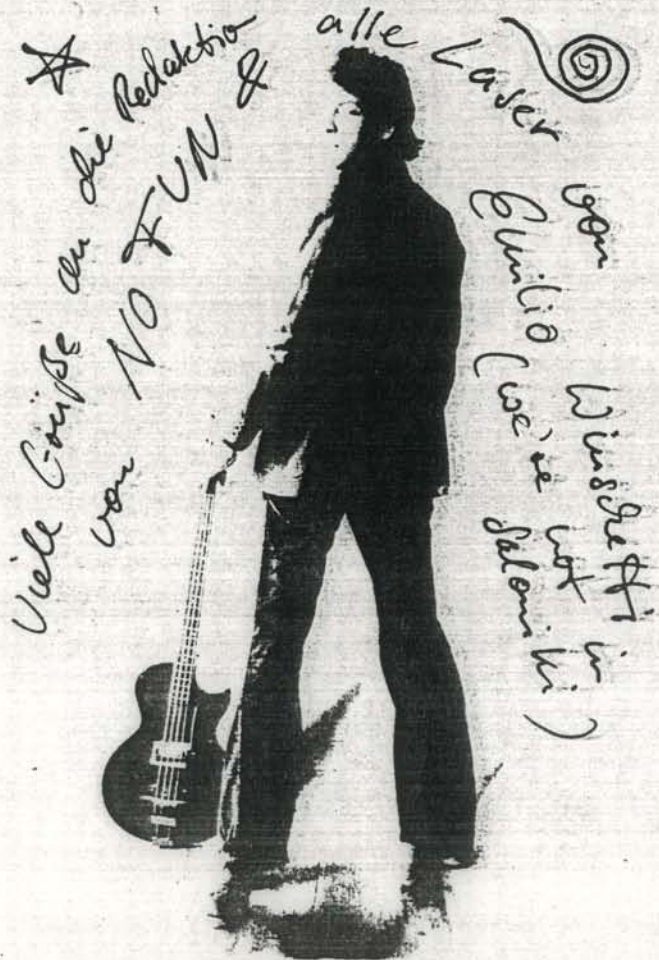 Viele Grüße an die Redaktion
von NO FUN &
alle Laser
von
Emilio Winschetti
(we're not in
Saloniki)